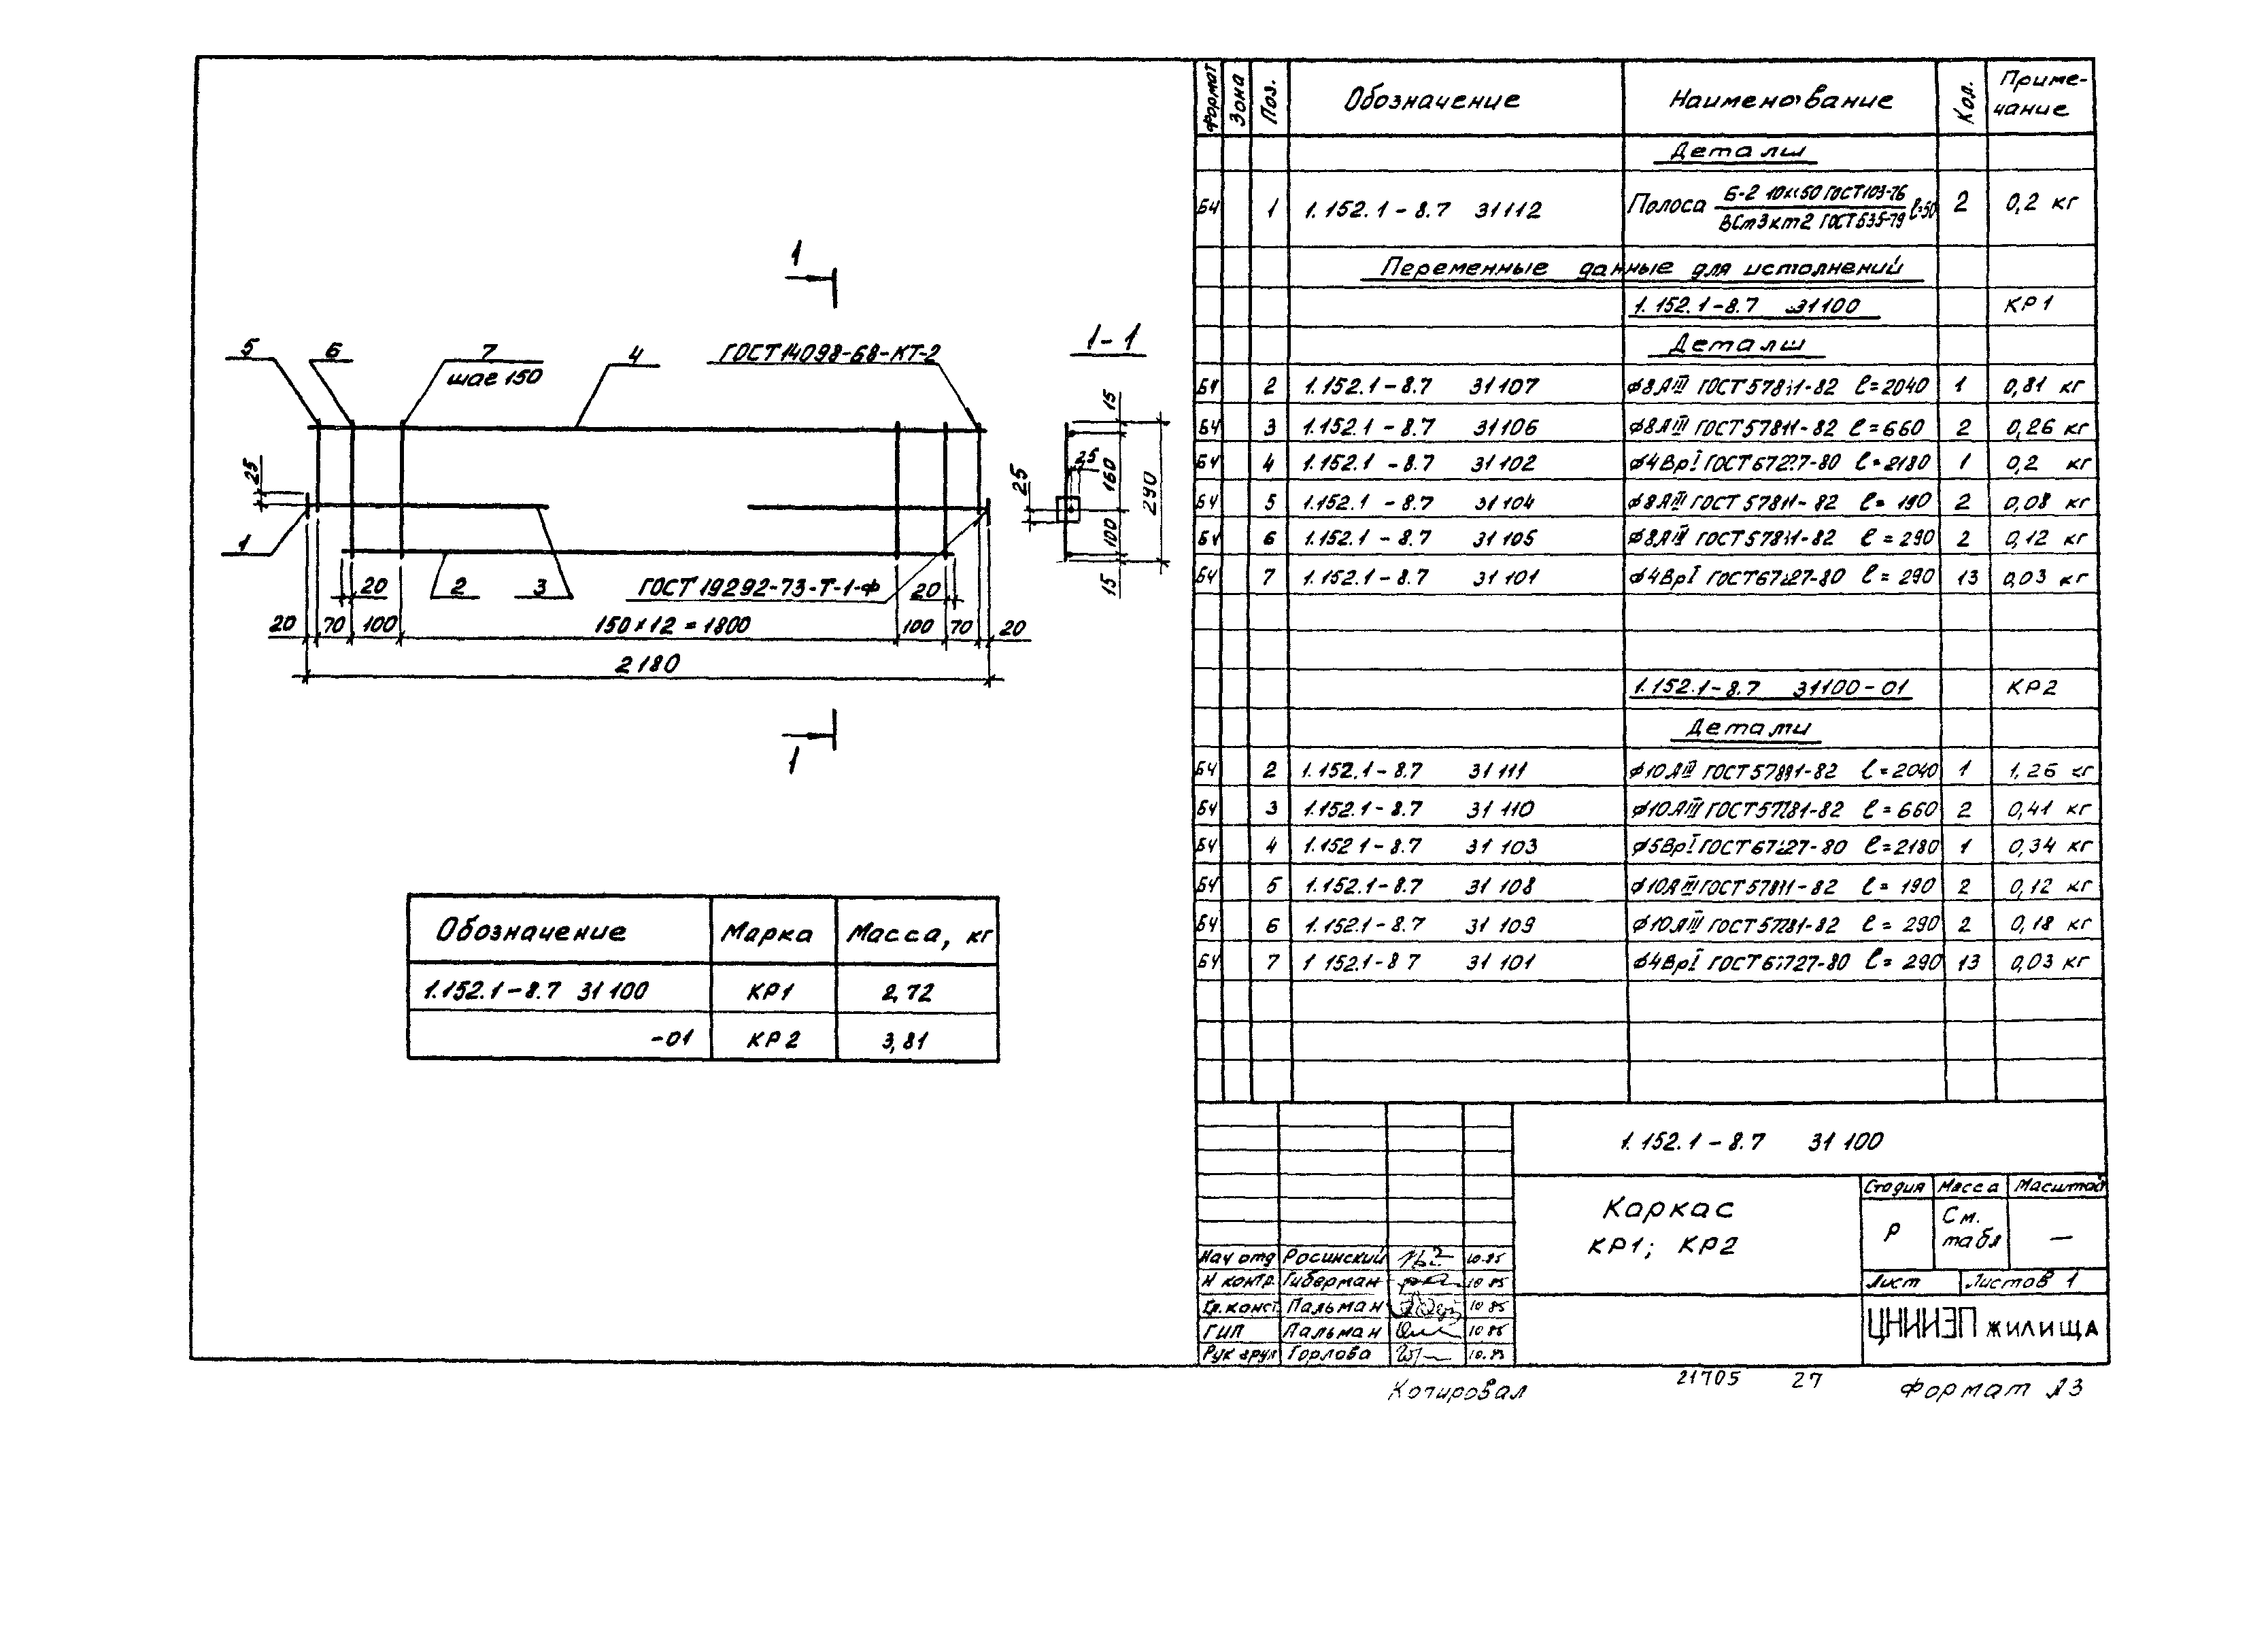 1
5
6
7
шаг 150
4
ГОСТ 14098-68-КТ-2
1-1
25
1
2
3
ГОСТ 19292-73-Т-1-Ф
20
20
20
70
100
150×12 = 1800
100
70
20
2180
1
15
25
160
290
25
100
15
Обозначение Марка Масса, кг
1.152.1-8.7 31100 КР1 2,72
-01 КР2 3,81
Формат Зона Поз. Обозначение Наименование Кол. Приме-
чание
Детали
БЧ 1 1.152.1-8.7 31112 Полоса Б-2 10х50 ГОСТ 103-76 ℓ=50 2 0,2 кг
ВСт3кп2 ГОСТ 535-79
Переменные данные для исполнений
1.152.1-8.7 31100 КР1
Детали
БЧ 2 1.152.1-8.7 31107 ∅8АIII ГОСТ 5781-82 ℓ=2040 1 0,81 кг
БЧ 3 1.152.1-8.7 31106 ∅8АIII ГОСТ 5781-82 ℓ=660 2 0,26 кг
БЧ 4 1.152.1-8.7 31102 ∅4ВрI ГОСТ 6727-80 ℓ=2180 1 0,2 кг
БЧ 5 1.152.1-8.7 31104 ∅8АIII ГОСТ 5781-82 ℓ=190 2 0,08 кг
БЧ 6 1.152.1-8.7 31105 ∅8АIII ГОСТ 5781-82 ℓ=290 2 0,12 кг
БЧ 7 1.152.1-8.7 31101 ∅4ВрI ГОСТ 6727-80 ℓ=290 13 0,03 кг
1.152.1-8.7 31100-01 КР2
Детали
БЧ 2 1.152.1-8.7 31111 ∅10АIII ГОСТ 5781-82 ℓ=2040 1 1,26 кг
БЧ 3 1.152.1-8.7 31110 ∅10АIII ГОСТ 5781-82 ℓ=660 2 0,41 кг
БЧ 4 1.152.1-8.7 31103 ∅5ВрI ГОСТ 6727-80 ℓ=2180 1 0,34 кг
БЧ 5 1.152.1-8.7 31108 ∅10АIII ГОСТ 5781-82 ℓ=190 2 0,12 кг
БЧ 6 1.152.1-8.7 31109 ∅10АIII ГОСТ 5781-82 ℓ=290 2 0,18 кг
БЧ 7 1.152.1-8.7 31101 ∅4ВрI ГОСТ 6727-80 ℓ=290 13 0,03 кг
1.152.1-8.7 31100
Каркас
КР1; КР2
Стадия Масса Масштаб
Р См. табл —
Лист Листов 1
ЦНИИЭП ЖИЛИЩА
Нач отд Росинский 10.85
Н контр. Гиберман 10 85
Гл. конст. Пальман 10 85
ГИП Пальман 10 85
Рук груп Горлова
Копировал 21705 27 Формат А3